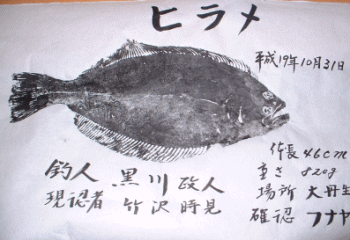 ヒラメ
平成19年10月31日
体長 46cm
重さ 820g
場所 大丹生
確認 フナヤ
釣人 黒川 政人
現認者 竹沢 時見